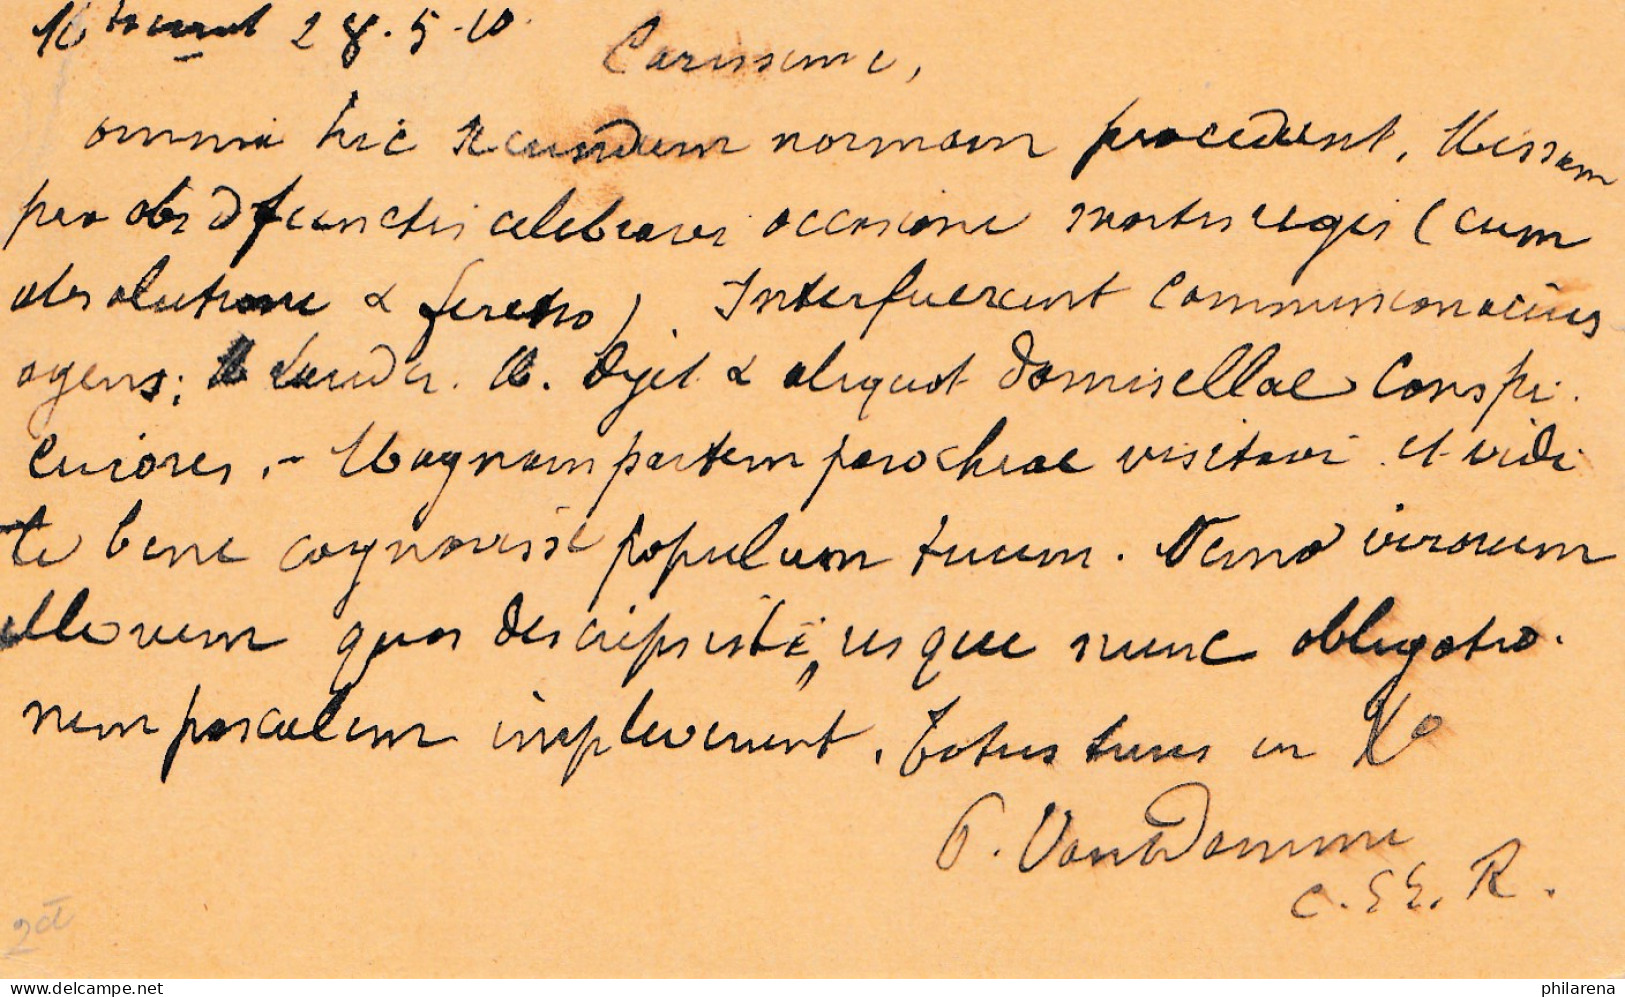 28.5.10
Carissime,
omnia hic secundum normam procedunt. Missam
pro obs defunctis celebravi occasione mortis regis (cum
absolutione & feretro). Interfuerunt Communionacius
agens; & aliquot domisellae conspi-
cuiores. - Magnam partem parochiae visitavi et vidi
te bene cognovisse populum tuum. Nemo virorum
illorum quos descripsisti, usque nunc obligatio-
nem paschalem impleverunt. Totus tuus in Xo
P. Van Damme
C. SS. R.
2d
delcampe.net
philarena